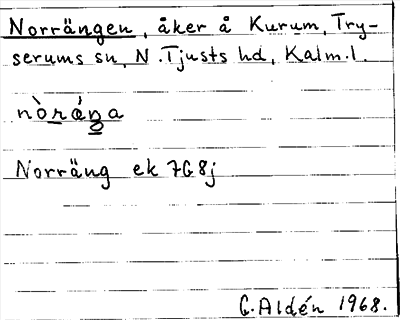 Norrängen, åker å Kurum, Try-
serums sn, N. Tjusts hd, Kalm. l.
Norräng ek 7G8j
G. Aldén 1968.